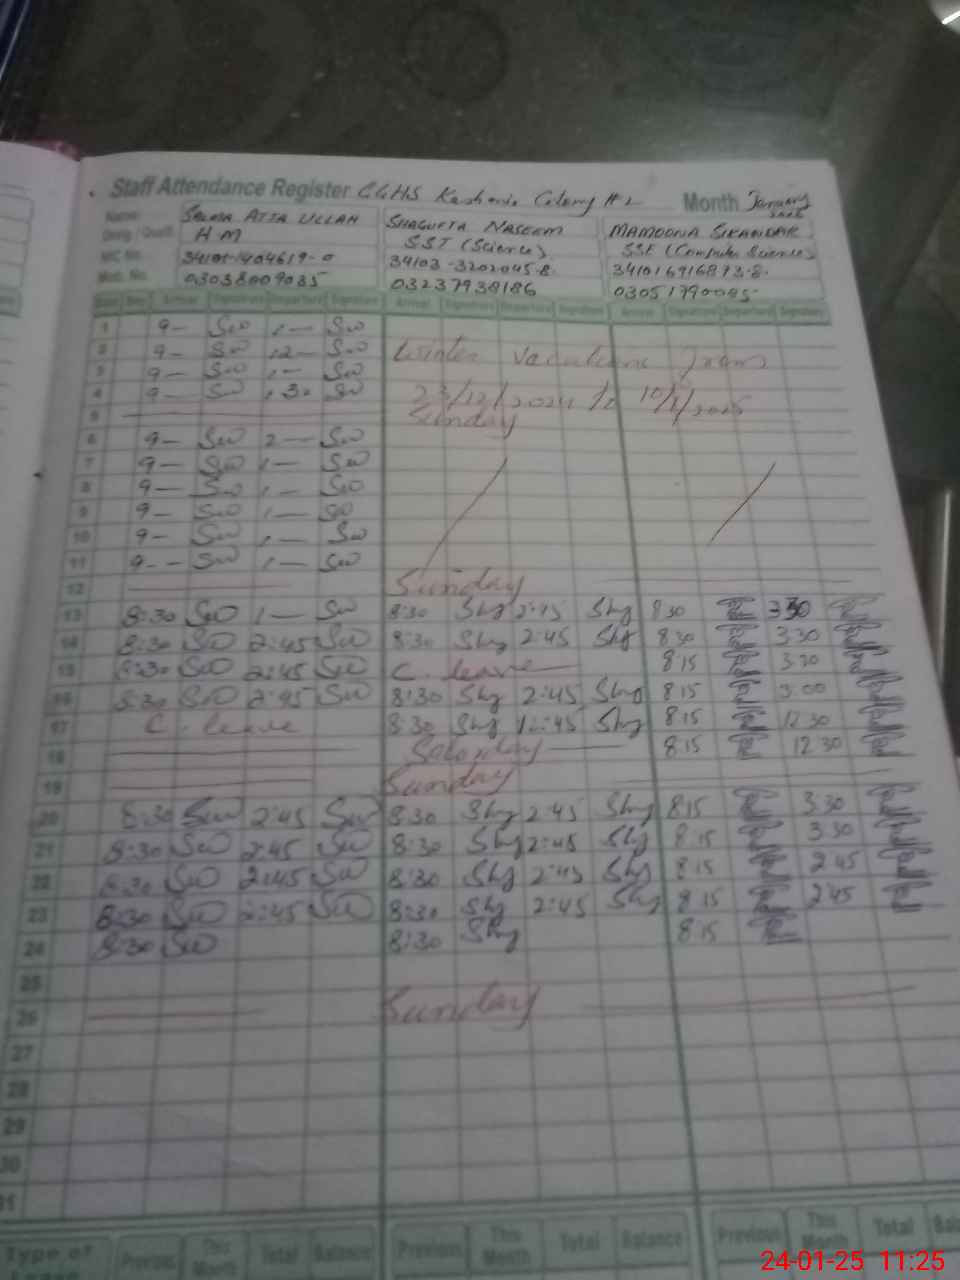 Staff Attendance Register GGHS Kashmir Colony #2 Month January 2025
Name SALMA ATTA ULLAH SHAGUFTA NASEEM MAMOONA SIKANDAR
Desig / Qualif. H M SST (Science) SSE (Computer Science)
NIC No. 34103-3202045-8
Mob. No. 03038009035 03237938186
Date Day Arrival Signature Departure Signature Arrival Signature Departure Signature Arrival Signature Departure Signature
1 9- 1-
2 9- 12- Winter Vacations From
3 9- 1-
4 9- 1.30 23/12/2024 to 10/1/2025
5 Sunday
6 9- 2-
7 9- 1-
8 9- 1-
9 9- 1-
10 9- 1-
11 9- 1-
12 Sunday
13 8:30 1- 8:30 Shg 2:45 Shg 8 30 3 30
14 8:30 2:45 8:30 Shg 2:45 Shg 8 30 3 30
15 8:30 2:45 C. leave 8 15 3 30
16 8:30 2:45 8:30 Shg 2:45 Shg 8 15 3 00
17 C. leave 8:30 Shg 12:45 Shg 8 15 12 30
18 Saturday 8 15 12 30
19 Sunday
20 8:30 2:45 8:30 Shg 2:45 Shg 8 15 3 30
21 8:30 2:45 8:30 Shg 2:45 Shg 8 15 3 30
22 8:30 2:45 8:30 Shg 2:45 Shg 8 15 2 45
23 8:30 2:45 8:30 Shg 2:45 Shg 8 15 2 45
24 8:30 8:30 Shg 8 15
25
26 Sunday
27
28
29
30
31
Type of Leave Previous This Month Total Balance Previous This Month Total Balance Previous This Month Total
24-01-25 11:25